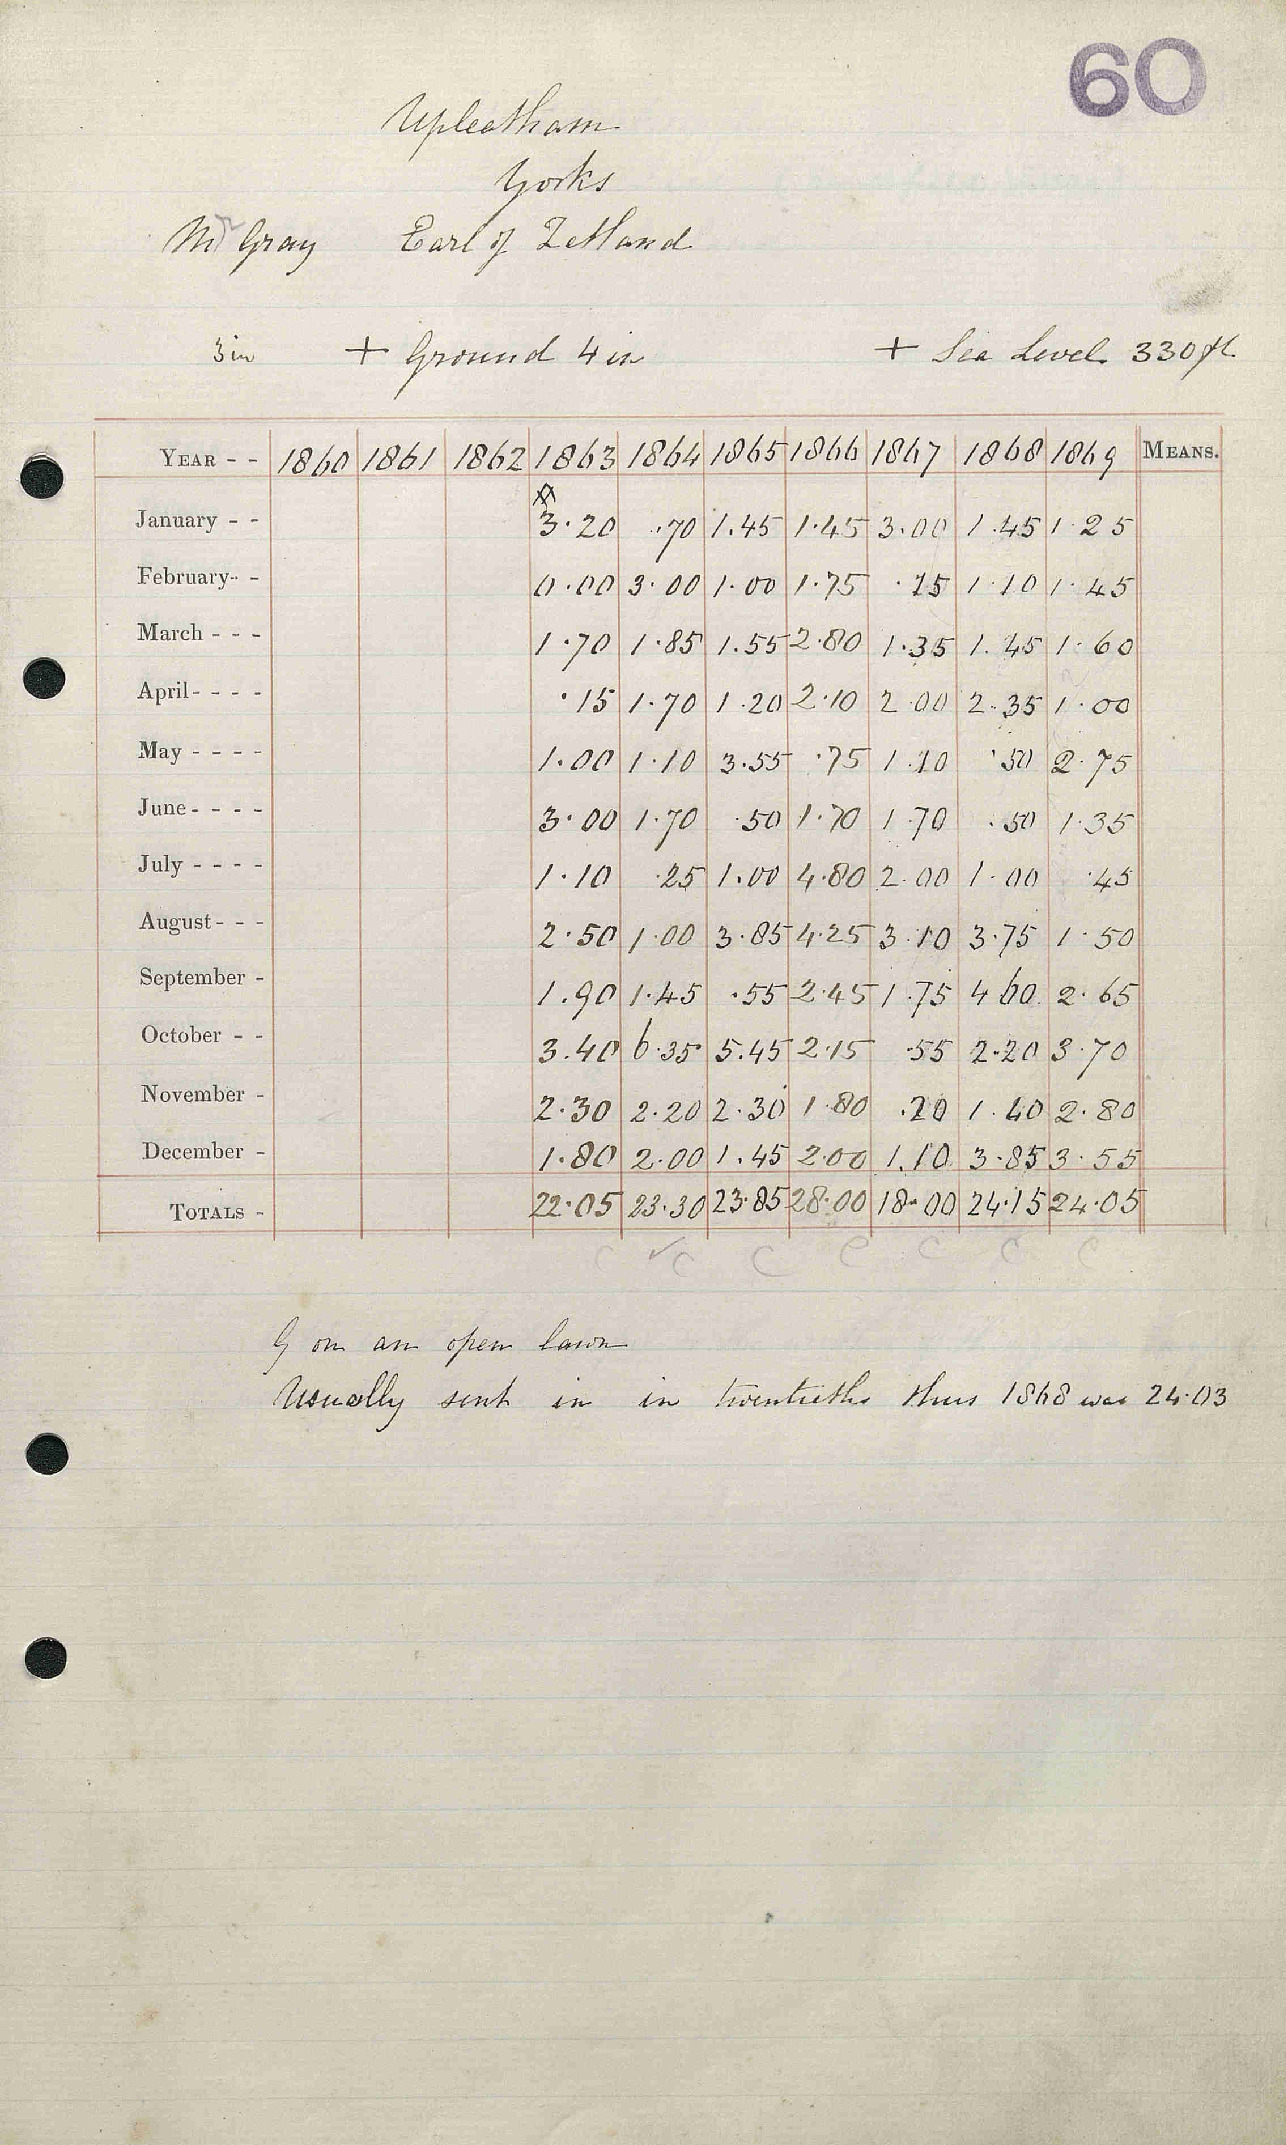 60
Upleatham
Yorks
Mr Gray Earl of Zetland
3 in + Ground 4 in + Sea Level 330 ft
YEAR - - 1860 1861 1862 1863 1864 1865 1866 1867 1868 1869 MEANS.
January - - 3.20 .70 1.45 1.45 3.00 1.45 1.25
February - - 0.00 3.00 1.00 1.75 .15 1.10 1.45
March - - - 1.70 1.85 1.55 2.80 1.35 1.45 1.60
April - - - - .15 1.70 1.20 2.10 2.00 2.35 1.00
May - - - - 1.00 1.10 3.55 .75 1.10 .50 2.75
June - - - - 3.00 1.70 .50 1.70 1.70 .50 1.35
July - - - - 1.10 .25 1.00 4.80 2.00 1.00 .45
August - - - 2.50 1.00 3.85 4.25 3.10 3.75 1.50
September - 1.90 1.45 .55 2.45 1.75 4.60 2.65
October - - 3.40 6.35 5.45 2.15 .55 2.20 3.70
November - 2.30 2.20 2.30 1.80 .20 1.40 2.80
December - 1.80 2.00 1.45 2.00 1.10 3.85 3.55
TOTALS - 22.05 23.30 23.85 28.00 18.00 24.15 24.05
C ✓C C C C C C
G on an open lawn
Usually sent in in twentieths thus 1868 was 24.03